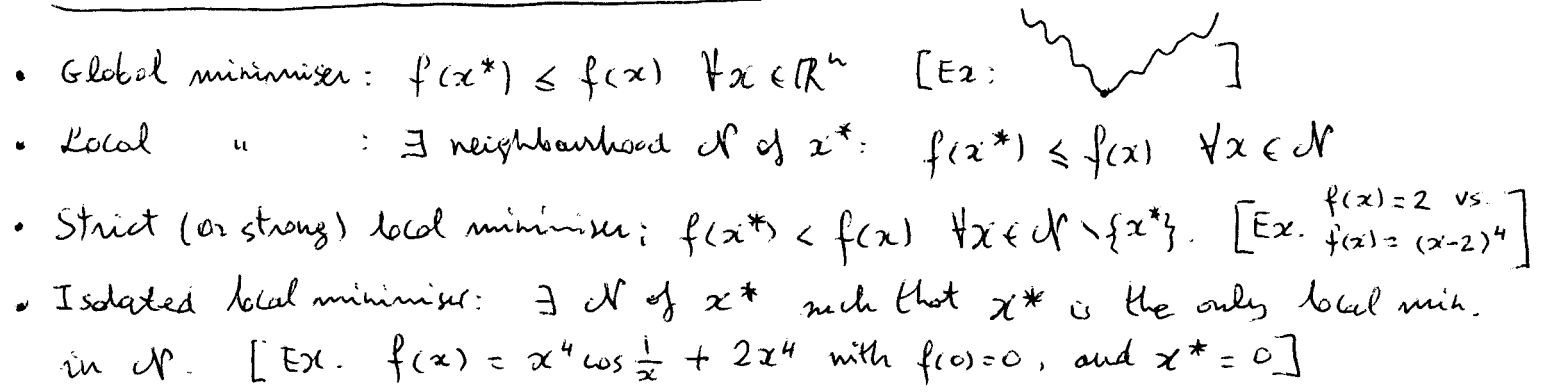 • Global minimiser: f(x*) ≤ f(x) ∀x ∈ ℝⁿ [Ex: ]
• Local " : ∃ neighbourhood 𝒩 of x*: f(x*) ≤ f(x) ∀x ∈ 𝒩
• Strict (or strong) local minimiser: f(x*) < f(x) ∀x ∈ 𝒩 \ {x*}. [Ex. f(x) = 2 vs. f(x) = (x-2)⁴]
• Isolated local minimiser: ∃ 𝒩 of x* such that x* is the only local min.
in 𝒩. [Ex. f(x) = x⁴ cos 1/x + 2x⁴ with f(0)=0, and x* = 0]